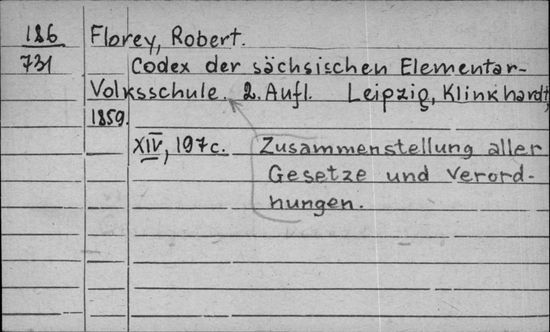 186
731
Florey, Robert.
Codex der sächsischen Elementar-
Volksschule. 2. Aufl. Leipzig, Klinkhardt,
1859.
XIV, 197 c. Zusammenstellung aller
Gesetze und Verord-
nungen.